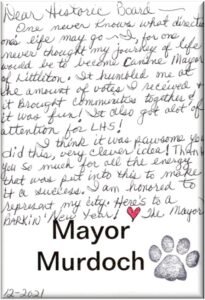 Dear Historic Board —
One never knows what direction
one's life may go — I for one
never thought my journey of life
would be to become Canine Mayor
of Littleton. It humbled me at
the amount of votes I received &
it brought communities together &
it was fun! It also got alot of
attention for LHS!
I think it was pawsome you
did this, very clever idea! Thank
you so much for all the energy
that was put into this to make
it a success. I am honored to
represent my city. Here's to a
BARKIN' New Year! The Mayor
Mayor
Murdoch
12-2021